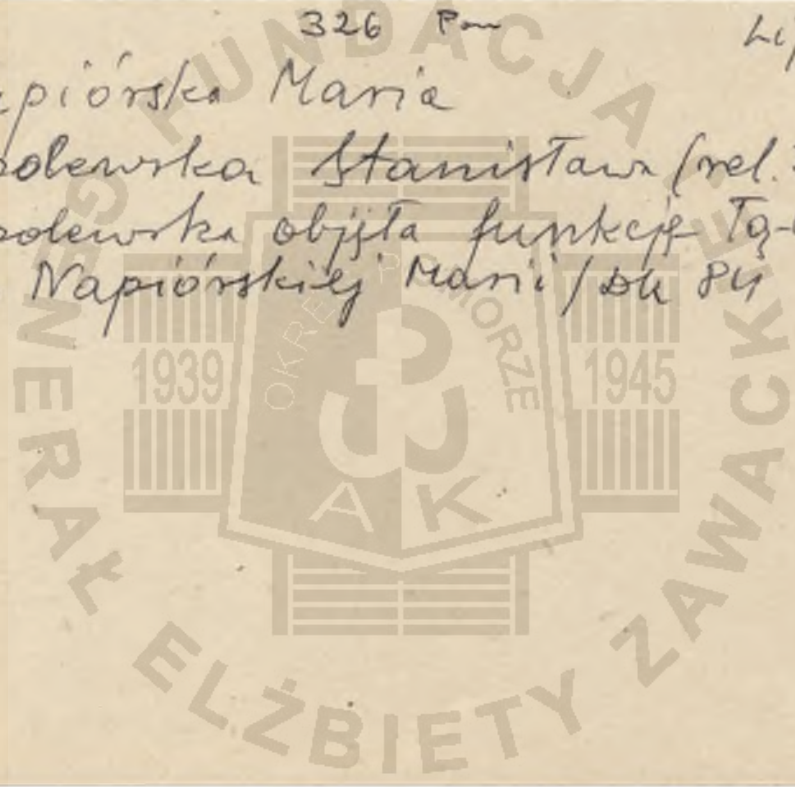 326 Pom
Lip
apiórska Maria
olewska Stanisława (rel.
olewska objęła funkcję Łą-
Napiórskiej Marii / DK 84
FUNDACJA
GENERAŁ ELŻBIETY ZAWACKIEJ
OKRĘG POMORZE
1939 1945
AK